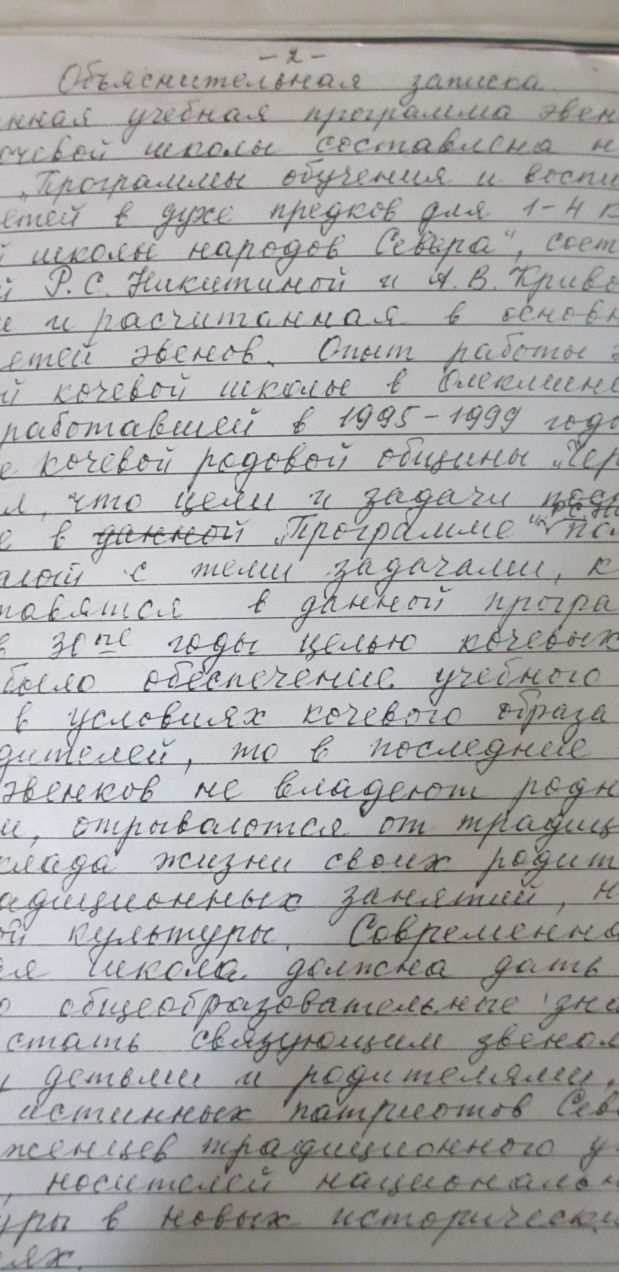 - 2 -
Объяснительная записка
нная учебная программа эвен
очевой школы составлена н
„Программы обучения и воспи
етей в духе предков для 1-4 к
й школы народов Севера", сост
й Р.С. Никитиной и А.В. Криво
и и расчитанная в основн
етей эвенов. Опыт работы э
й кочевой школы в Олеклинс
работавшей в 1995-1999 год
е кочевой родовой общины „Чер
л, что цели и задачи
е в данной „Программе"
алой с теми задачами, к
тавятся в данной програ
в 30ые годы целью кочевых
было обеспечение учебного
в условиях кочевого образа
дителей, то в последние
эвенков не владеют родн
и, отрываются от традиц
клада жизни своих родит
адиционных занятий, н
ой культуры. Современна
ая школа должна дать
о общеобразовательные зна
стать связующим звеном
у детьми и родителями,
истинных патриотов Сев
женцев традиционного у
, носителей национальн
уры в новых исторически
иях.